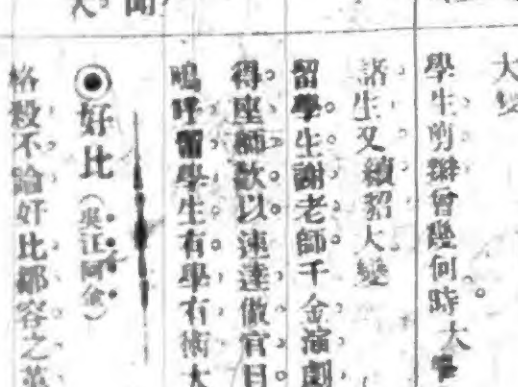 大變
學生剪辮曾幾何時。大
諸生又續招大變
留學生謝老師千金演劇
得座師歡以速達做官目
嗚呼留學生有學有術大
◉好比(吳江阿金)
格殺不論好比鄒容之革